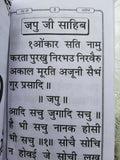 जपु जी साहिब
१ओंकार सति नामु
करता पुरखु निरभउ निरवैरु
अकाल मूरति अजूनी सैभं
गुर प्रसादि ॥
॥ जपु ॥
आदि सचु जुगादि सचु ॥
है भी सचु नानक होसी
भी सचु ॥१॥ सोचै सोचि
न होवई जे सोची